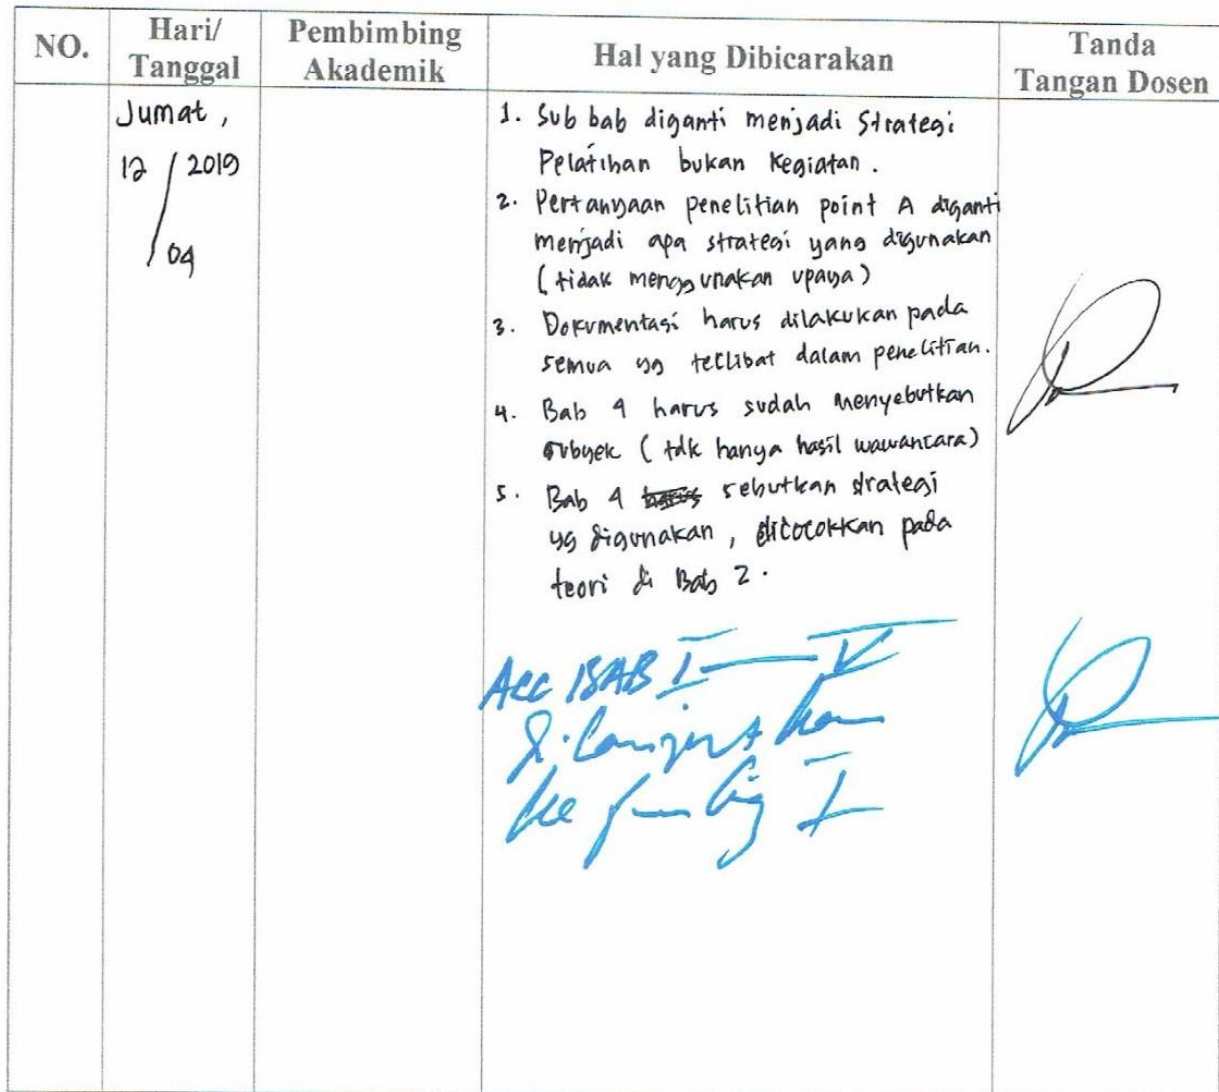 NO.
Hari/
Tanggal
Pembimbing
Akademik
Hal yang Dibicarakan
Tanda
Tangan Dosen
Jumat,
12 / 2019
/ 04
1. Sub bab diganti menjadi Strategi
Pelatihan bukan kegiatan.
2. Pertanyaan penelitian point A diganti
menjadi apa strategi yang digunakan
(tidak menggunakan upaya)
3. Dokumentasi harus dilakukan pada
semua yg terlibat dalam penelitian.
4. Bab 4 harus sudah menyebutkan
subyek (tdk hanya hasil wawancara)
5. Bab 4 sebutkan strategi
yg digunakan, dicocokkan pada
teori di Bab 2.
Acc BAB I — V
dilanjutkan
ke I